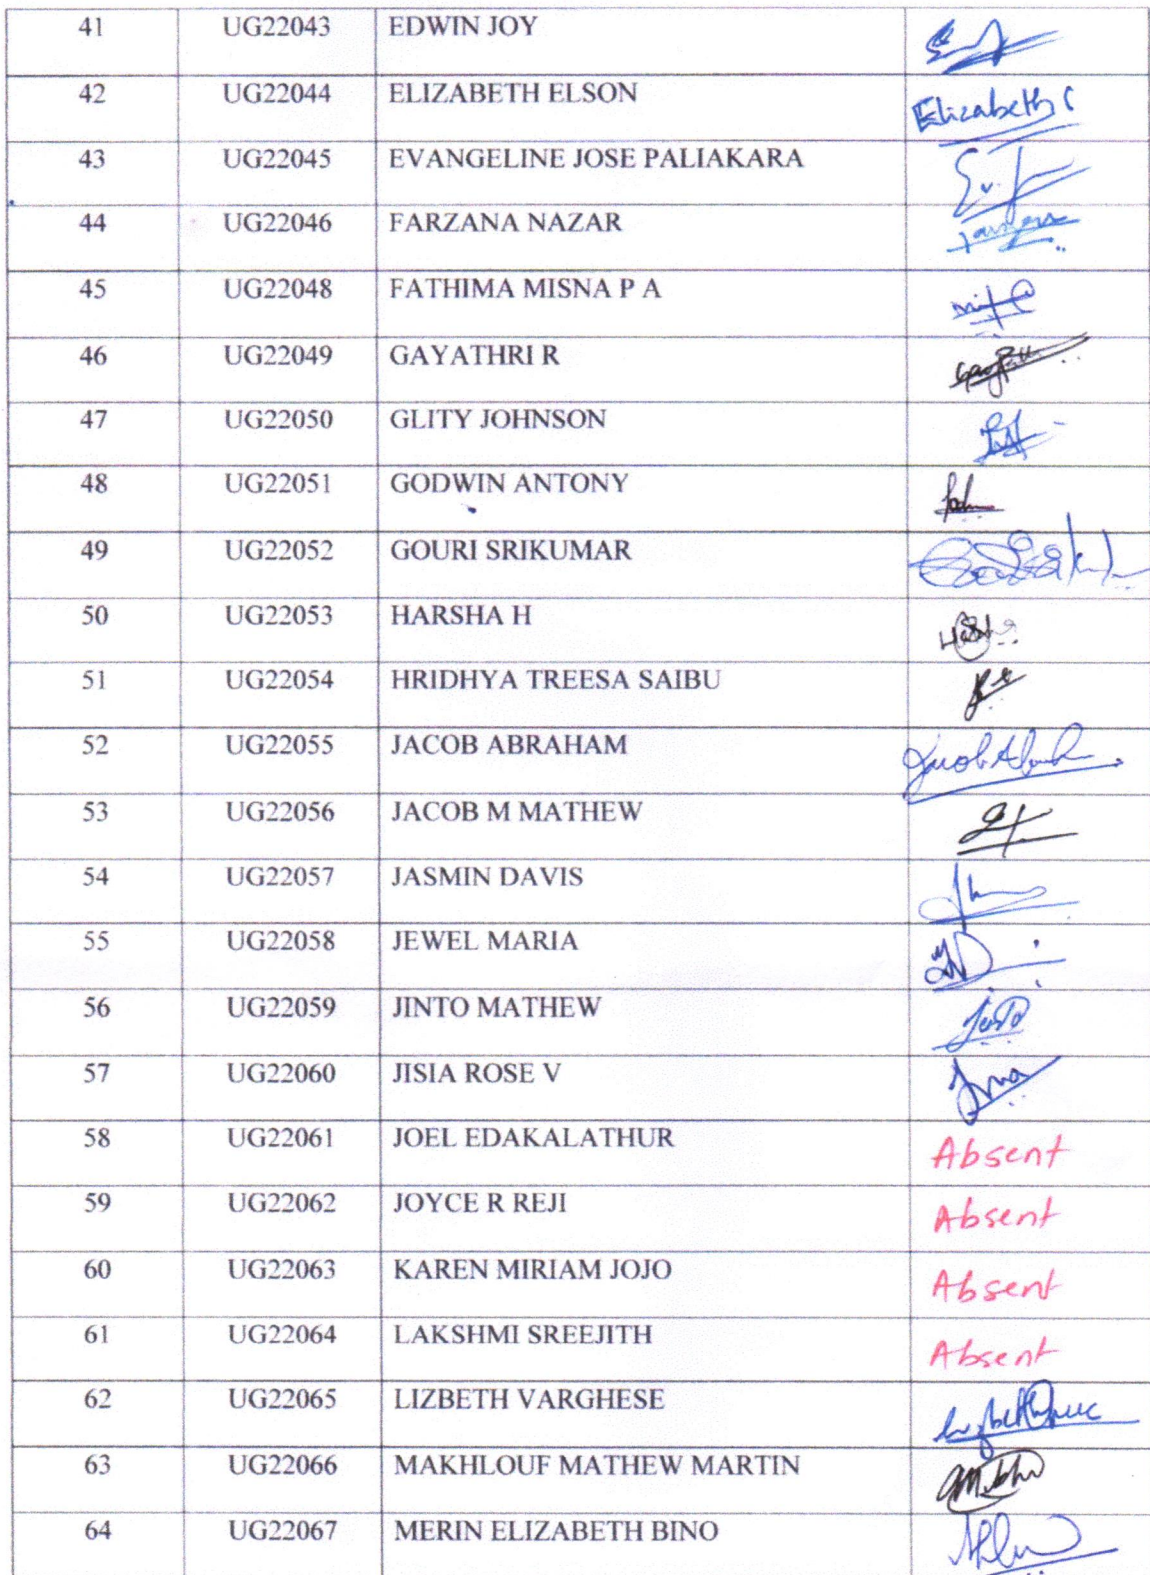 41 UG22043 EDWIN JOY
42 UG22044 ELIZABETH ELSON Elizabeth
43 UG22045 EVANGELINE JOSE PALIAKARA
44 UG22046 FARZANA NAZAR
45 UG22048 FATHIMA MISNA P A
46 UG22049 GAYATHRI R
47 UG22050 GLITY JOHNSON
48 UG22051 GODWIN ANTONY
49 UG22052 GOURI SRIKUMAR
50 UG22053 HARSHA H
51 UG22054 HRIDHYA TREESA SAIBU
52 UG22055 JACOB ABRAHAM
53 UG22056 JACOB M MATHEW
54 UG22057 JASMIN DAVIS
55 UG22058 JEWEL MARIA
56 UG22059 JINTO MATHEW
57 UG22060 JISIA ROSE V
58 UG22061 JOEL EDAKALATHUR Absent
59 UG22062 JOYCE R REJI Absent
60 UG22063 KAREN MIRIAM JOJO Absent
61 UG22064 LAKSHMI SREEJITH Absent
62 UG22065 LIZBETH VARGHESE
63 UG22066 MAKHLOUF MATHEW MARTIN
64 UG22067 MERIN ELIZABETH BINO